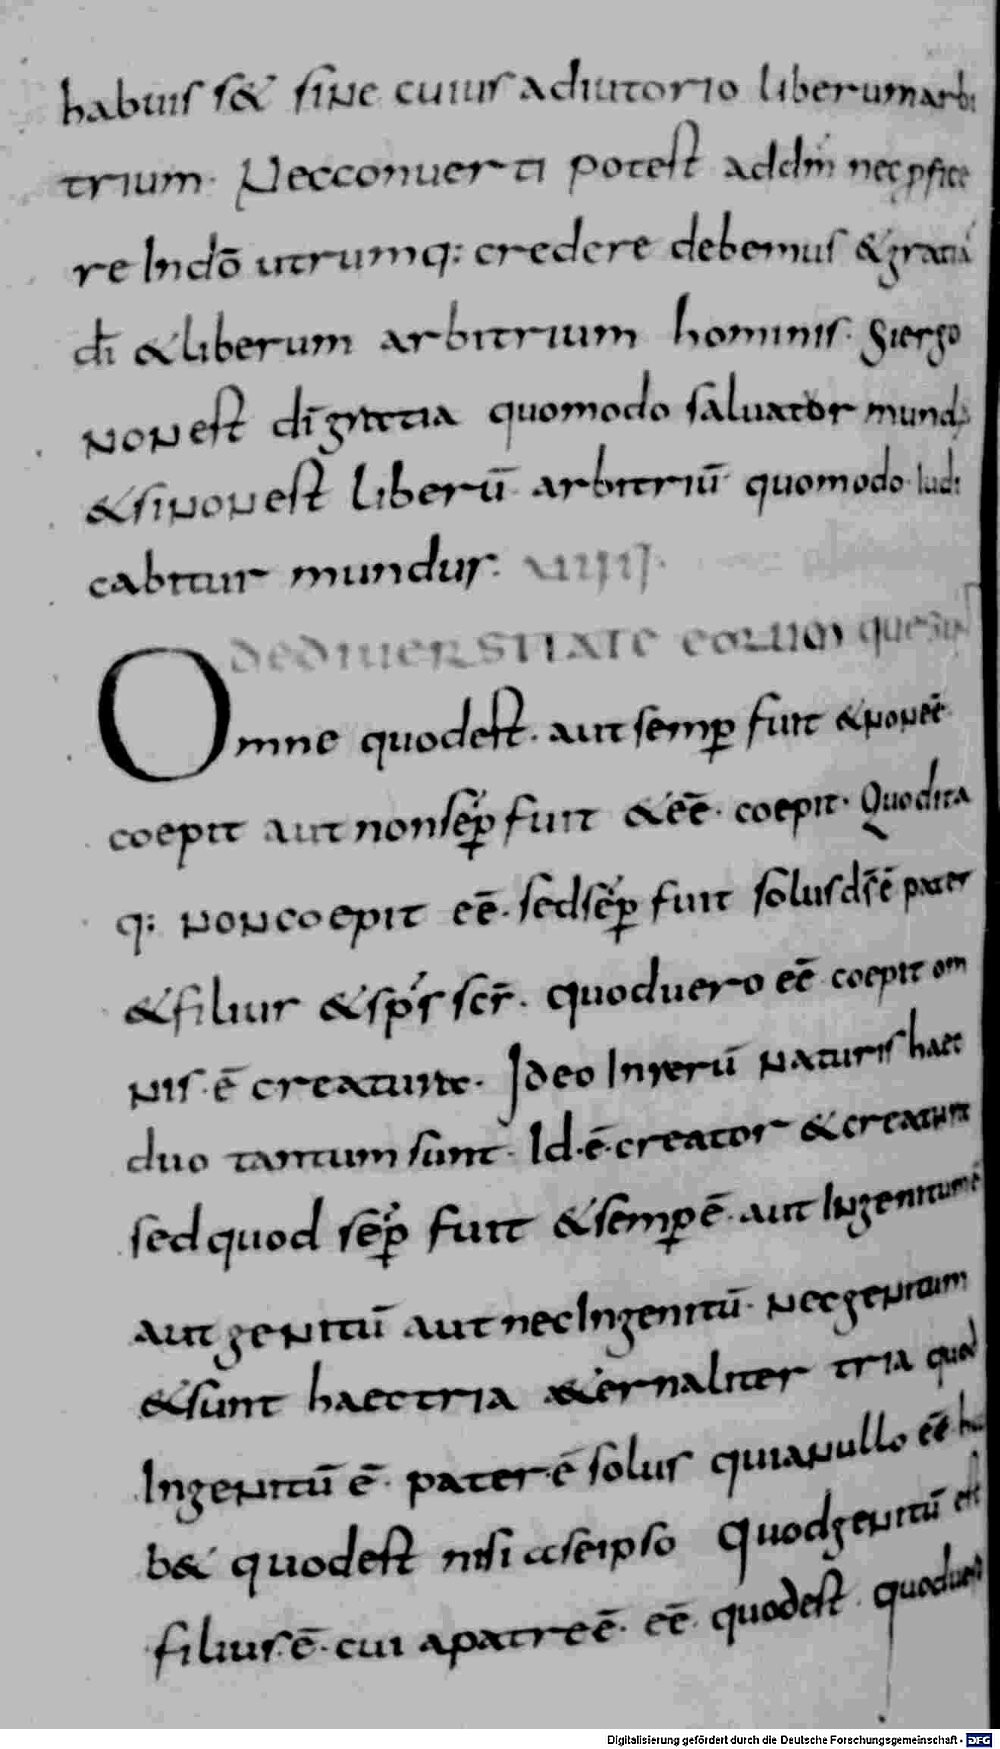 habuis s& sine cuius adiutorio liberum arbi
trium. Nec conuerti potest ad dm̄ nec ꝓfice
re In dō utrumq: credere debemus & gratiā
dī & liberum arbitrium hominis. Si ergo
non est dī gratia quomodo saluator mundū
& si non est liberū arbitriū quomodo Iudi
cabitur mundus. VIIII
De diuersitate eorum que sunt
Omne quod est. aut semꝑ fuit & non eē
coepit aut non sēꝑ fuit & eē. coepit. Quod ita
q: non coepit eē. sed sēꝑ fuit solus dſ̄ ē pater
& filius & sps̄ scs̄. quod uero eē coepit om
nis. ē creatura. Ideo In rerū naturis haec
duo tantum sunt. Id. ē. creator & creatura
sed quod sēꝑ fuit & semꝑ ē. aut Ingenitum ē
aut genitū aut nec Ingenitū. nec genitum
& sunt haec tria &ernaliter tria quod
Ingenitū ē. pater. ē solus quia nullo eē ha
b& quod est nisi a seipso Quod genitū est
filius. ē. cui a patre ē. eē. quod est. quod uero
Digitalisierung gefördert durch die Deutsche Forschungsgemeinschaft - DFG